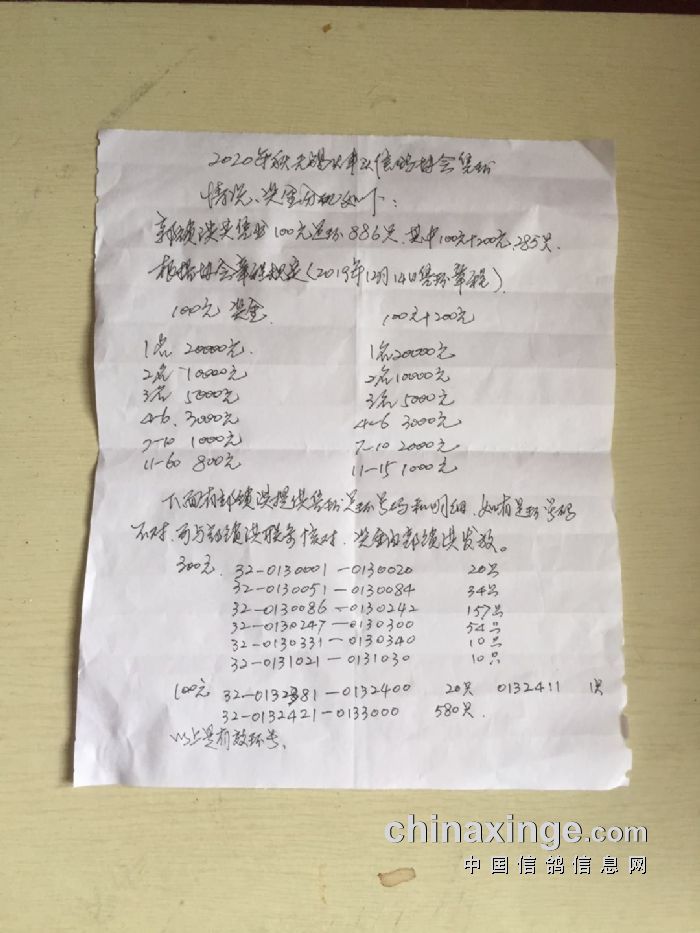 2020年秋无锡火车头信鸽协会售环
情况、奖金分配如下：
郭锁洪共售出100元足环886只,其中100元+200元,285只.
根据协会章程规定(2019年12月14日售环章程).
100元 奖金 100元+200元
1名 20000元. 1名20000元
2名 10000元 2名10000元
3名 5000元 3名 5000元
4-6. 3000元 4-6 3000元
7-10 1000元 7-10 2000元
11-60 800元 11-15 1000元
下面有郭锁洪提供售环足环号码和明细,如有足环号码
不对,可与郭锁洪联系核对,奖金由郭锁洪发放。
300元. 32-0130001-0130020 20只
32-0130051-0130084 34只
32-0130086-0130242 157只
32-0130247-0130300 54只
32-0130331-0130340 10只
32-0131021-0131030 10只
100元 32-0132381-0132400 20只 0132411 1只
32-0132421-0133000 580只.
以上是有效环号.
chinaxinge.com
中国信鸽信息网